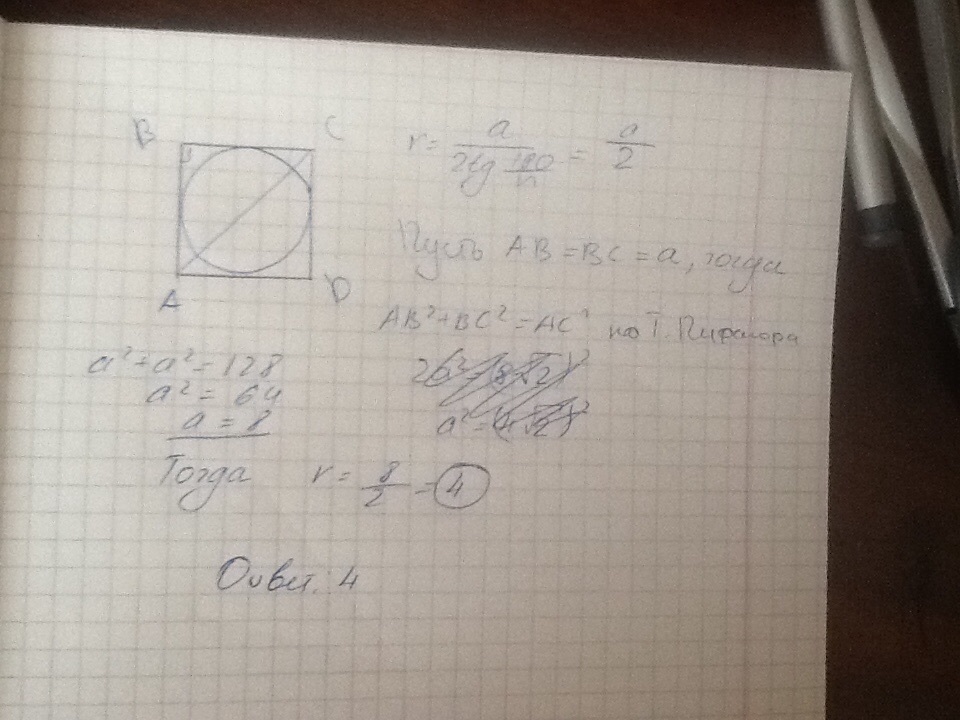 B C
r = a / (2tg 180/n) = a/2
Пусть AB = BC = a, тогда
A D
AB² + BC² = AC² по Т. Пифагора
a² + a² = 128
a² = 64
a = 8
Тогда r = 8/2 = 4
Ответ: 4